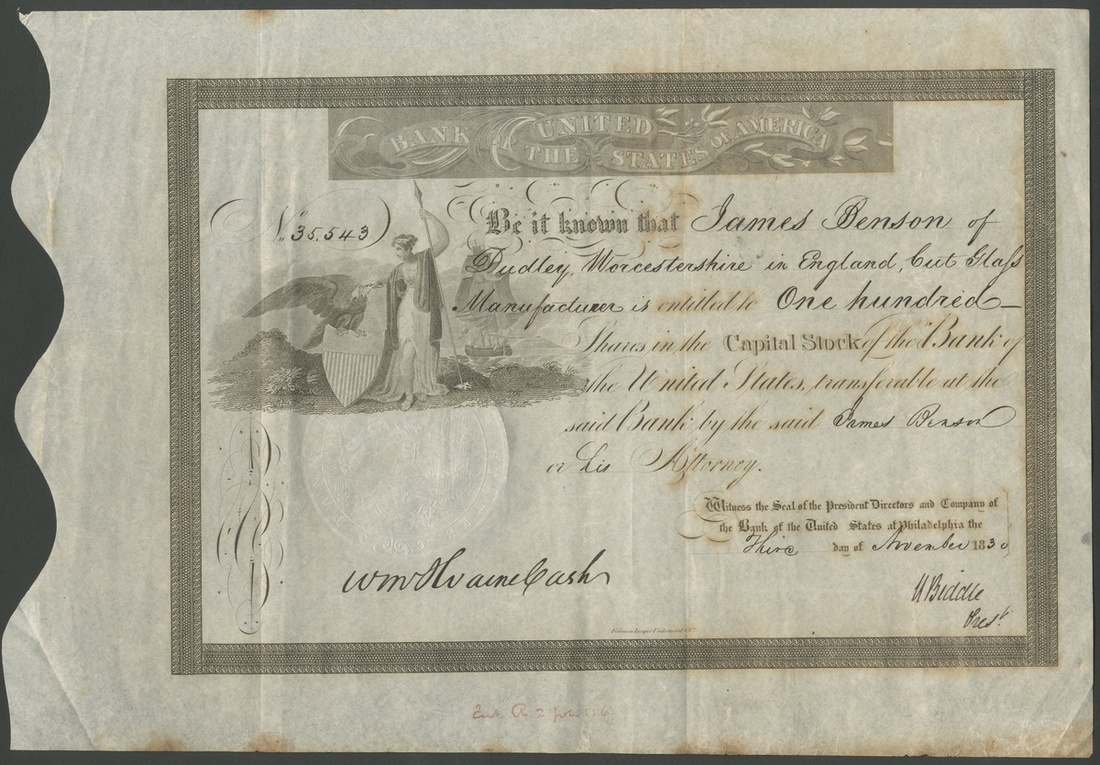 BANK OF THE UNITED STATES OF AMERICA
No. 35,543
Be it known that James Benson of
Dudley, Worcestershire in England, Cut Glass
Manufacturer is entitled to One hundred —
Shares in the Capital Stock of the Bank of
the United States, transferable at the
said Bank by the said James Benson
or his Attorney.
Witness the Seal of the President Directors and Company of
the Bank of the United States at Philadelphia the
Third day of November 1830
Wm McIlvaine Cashr
N Biddle
Prest